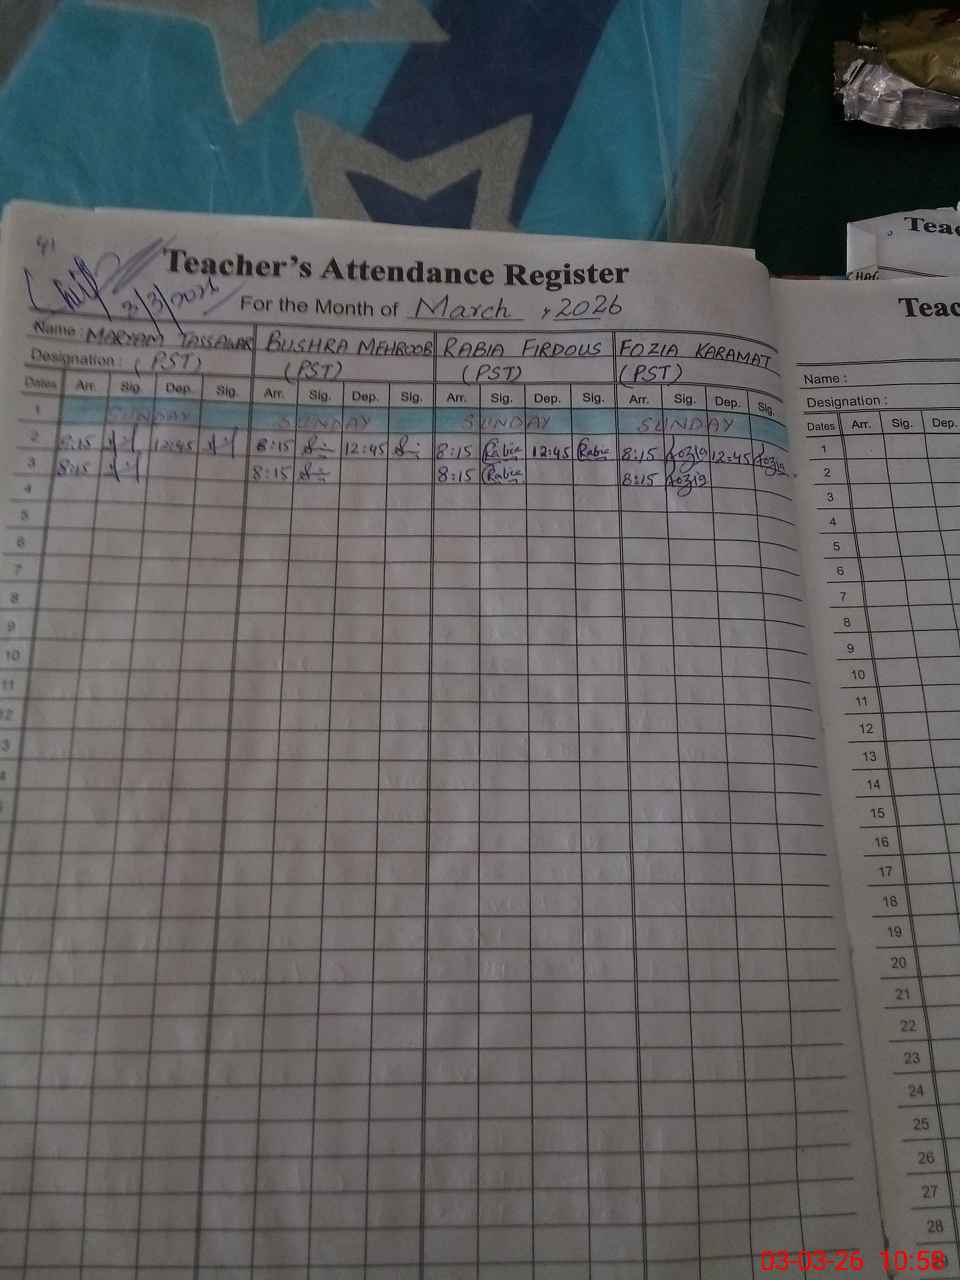 41
3/3/2026
Teacher's Attendance Register
For the Month of March, 2026
Name: MARYAM TASSAWAR BUSHRA MEHROOB RABIA FIRDOUS FOZIA KARAMAT
Designation: (PST) (PST) (PST) (PST)
Dates Arr. Sig. Dep. Sig. Arr. Sig. Dep. Sig. Arr. Sig. Dep. Sig. Arr. Sig. Dep. Sig.
1 SUNDAY SUNDAY SUNDAY SUNDAY
2 8:15 12:45 8:15 12:45 8:15 Rabia 12:45 Rabia 8:15 Fozia 12:45 Fozia
3 8:15 8:15 8:15 Rabia 8:15 Fozia
4
5
6
7
8
9
10
11
12
3
Teac
Teac
Name :
Designation :
Dates Arr. Sig. Dep.
1
2
3
4
5
6
7
8
9
10
11
12
13
14
15
16
17
18
19
20
21
22
23
24
25
26
27
28
03-03-26 10:58